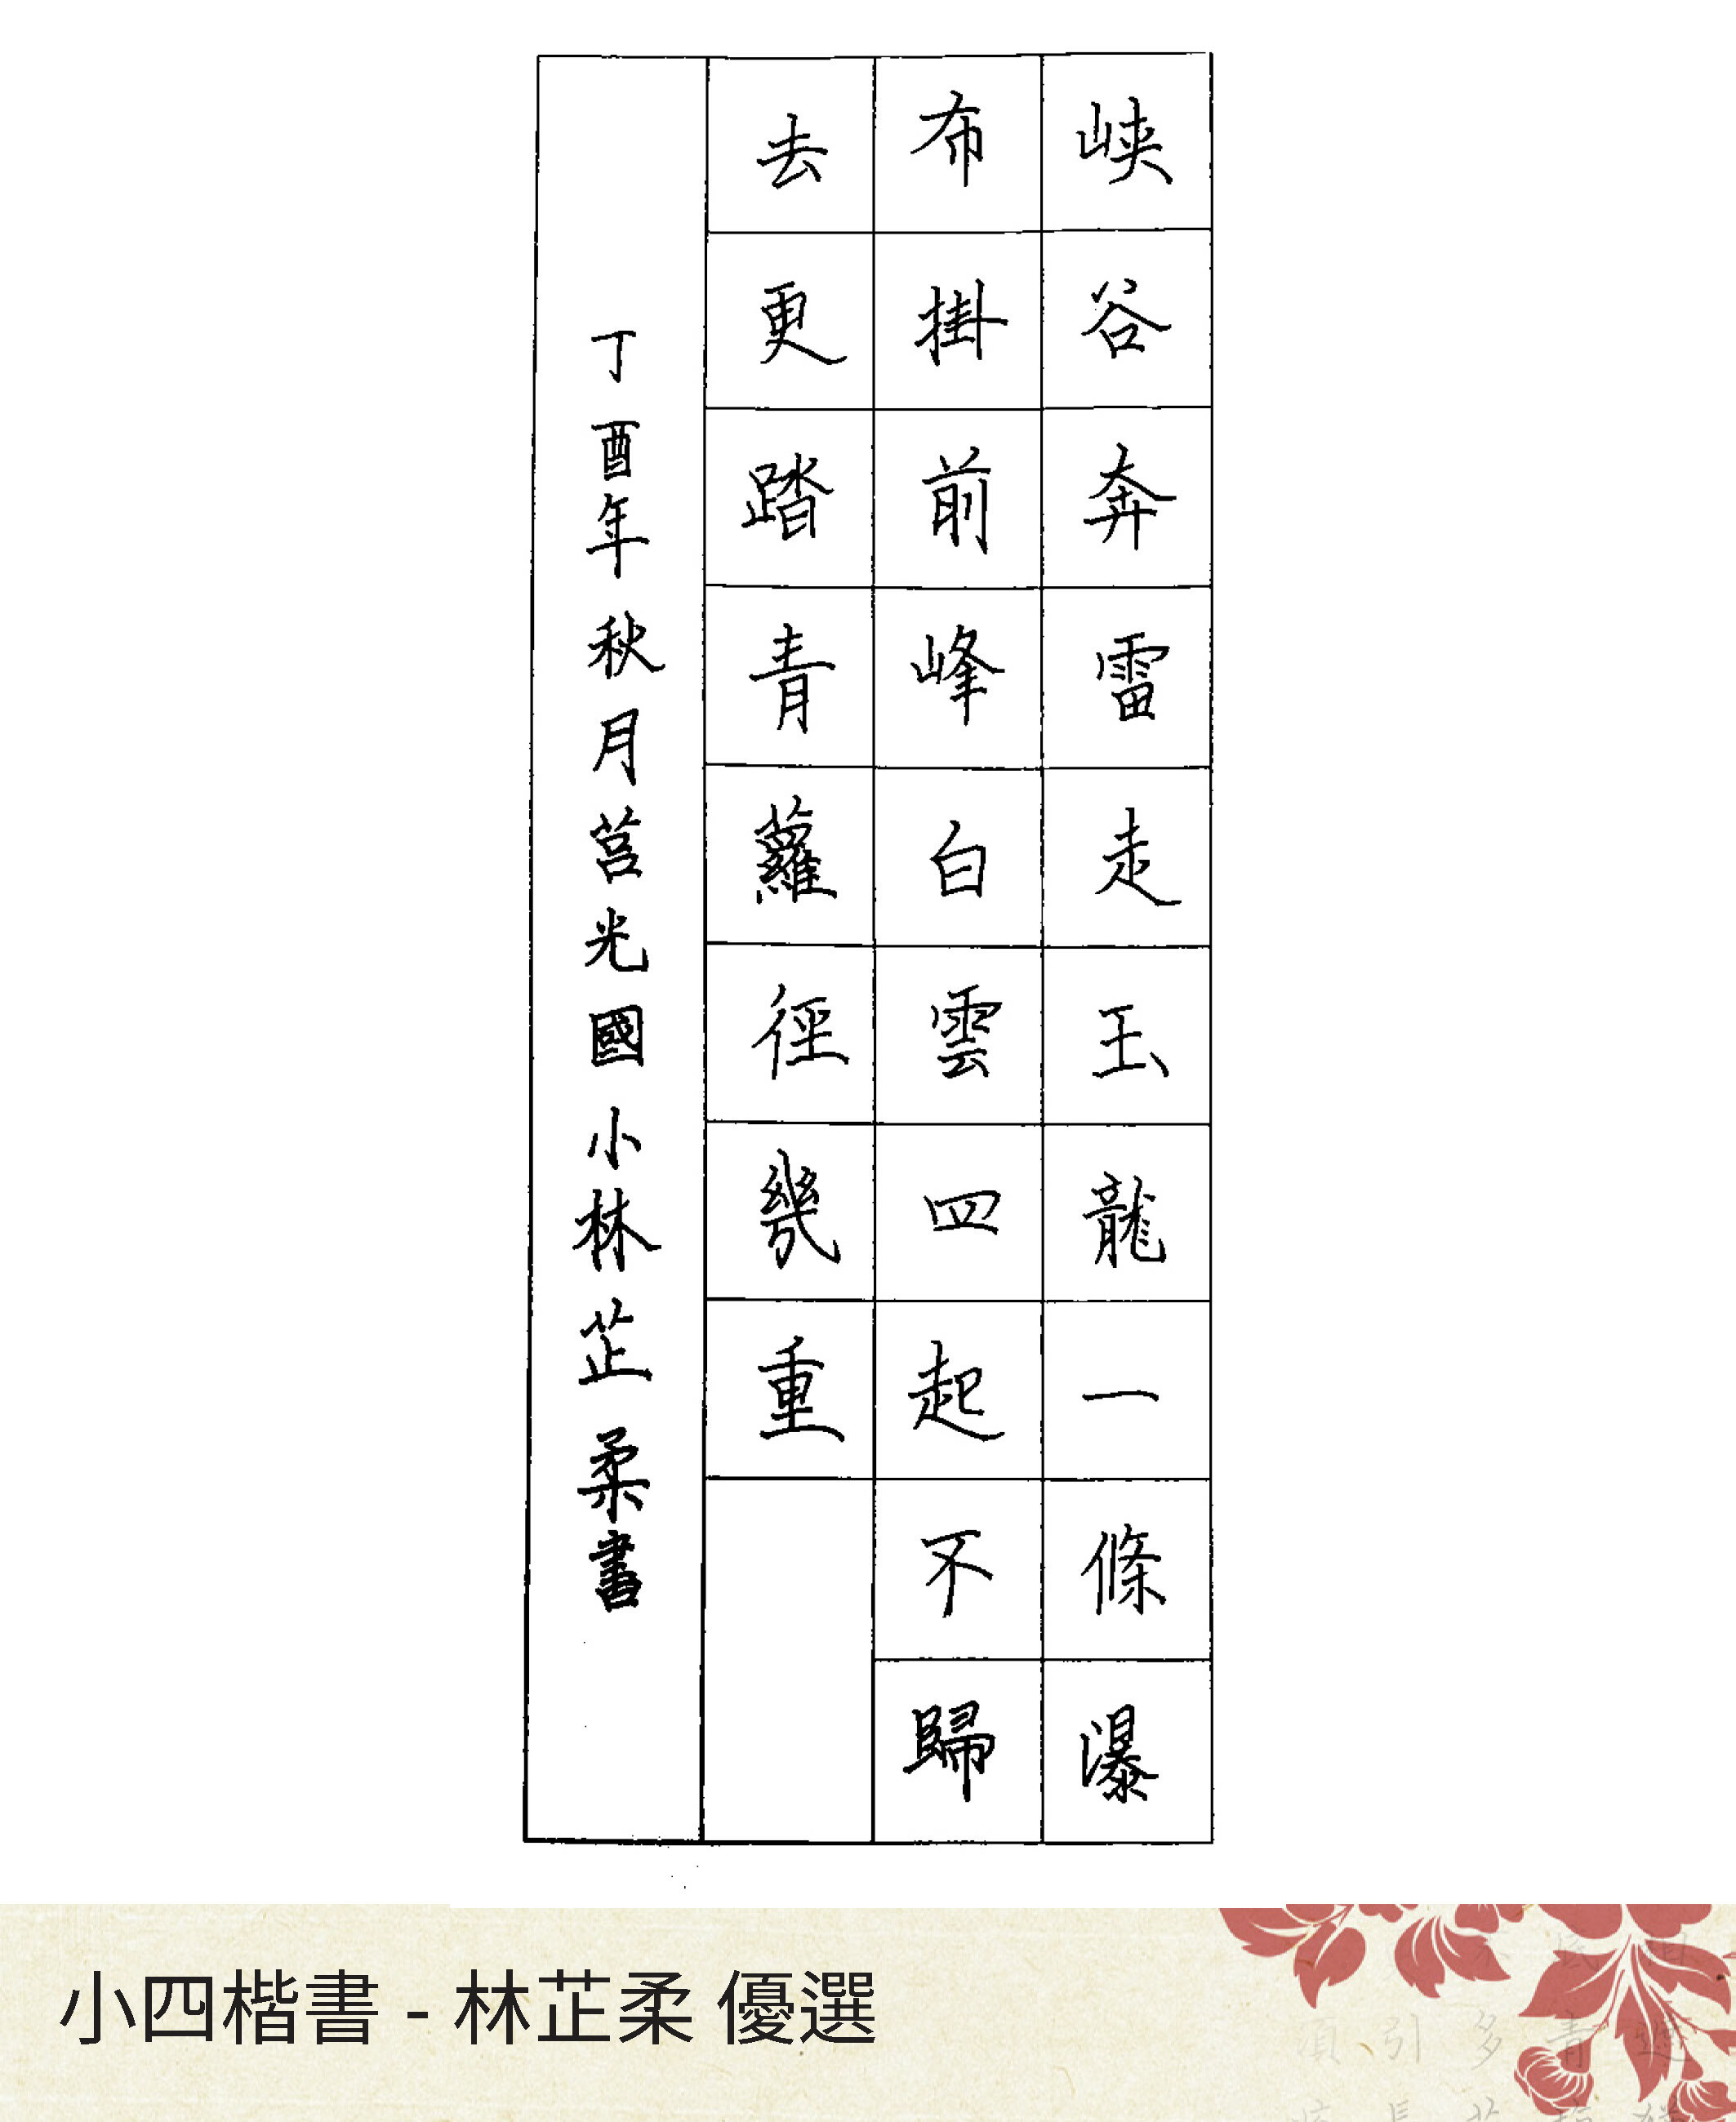 峽谷奔雷走玉龍一條瀑
布掛前峰白雲四起不歸
去更踏青蘿徑幾重
丁酉年秋月莒光國小林芷柔書
小四楷書 - 林芷柔 優選